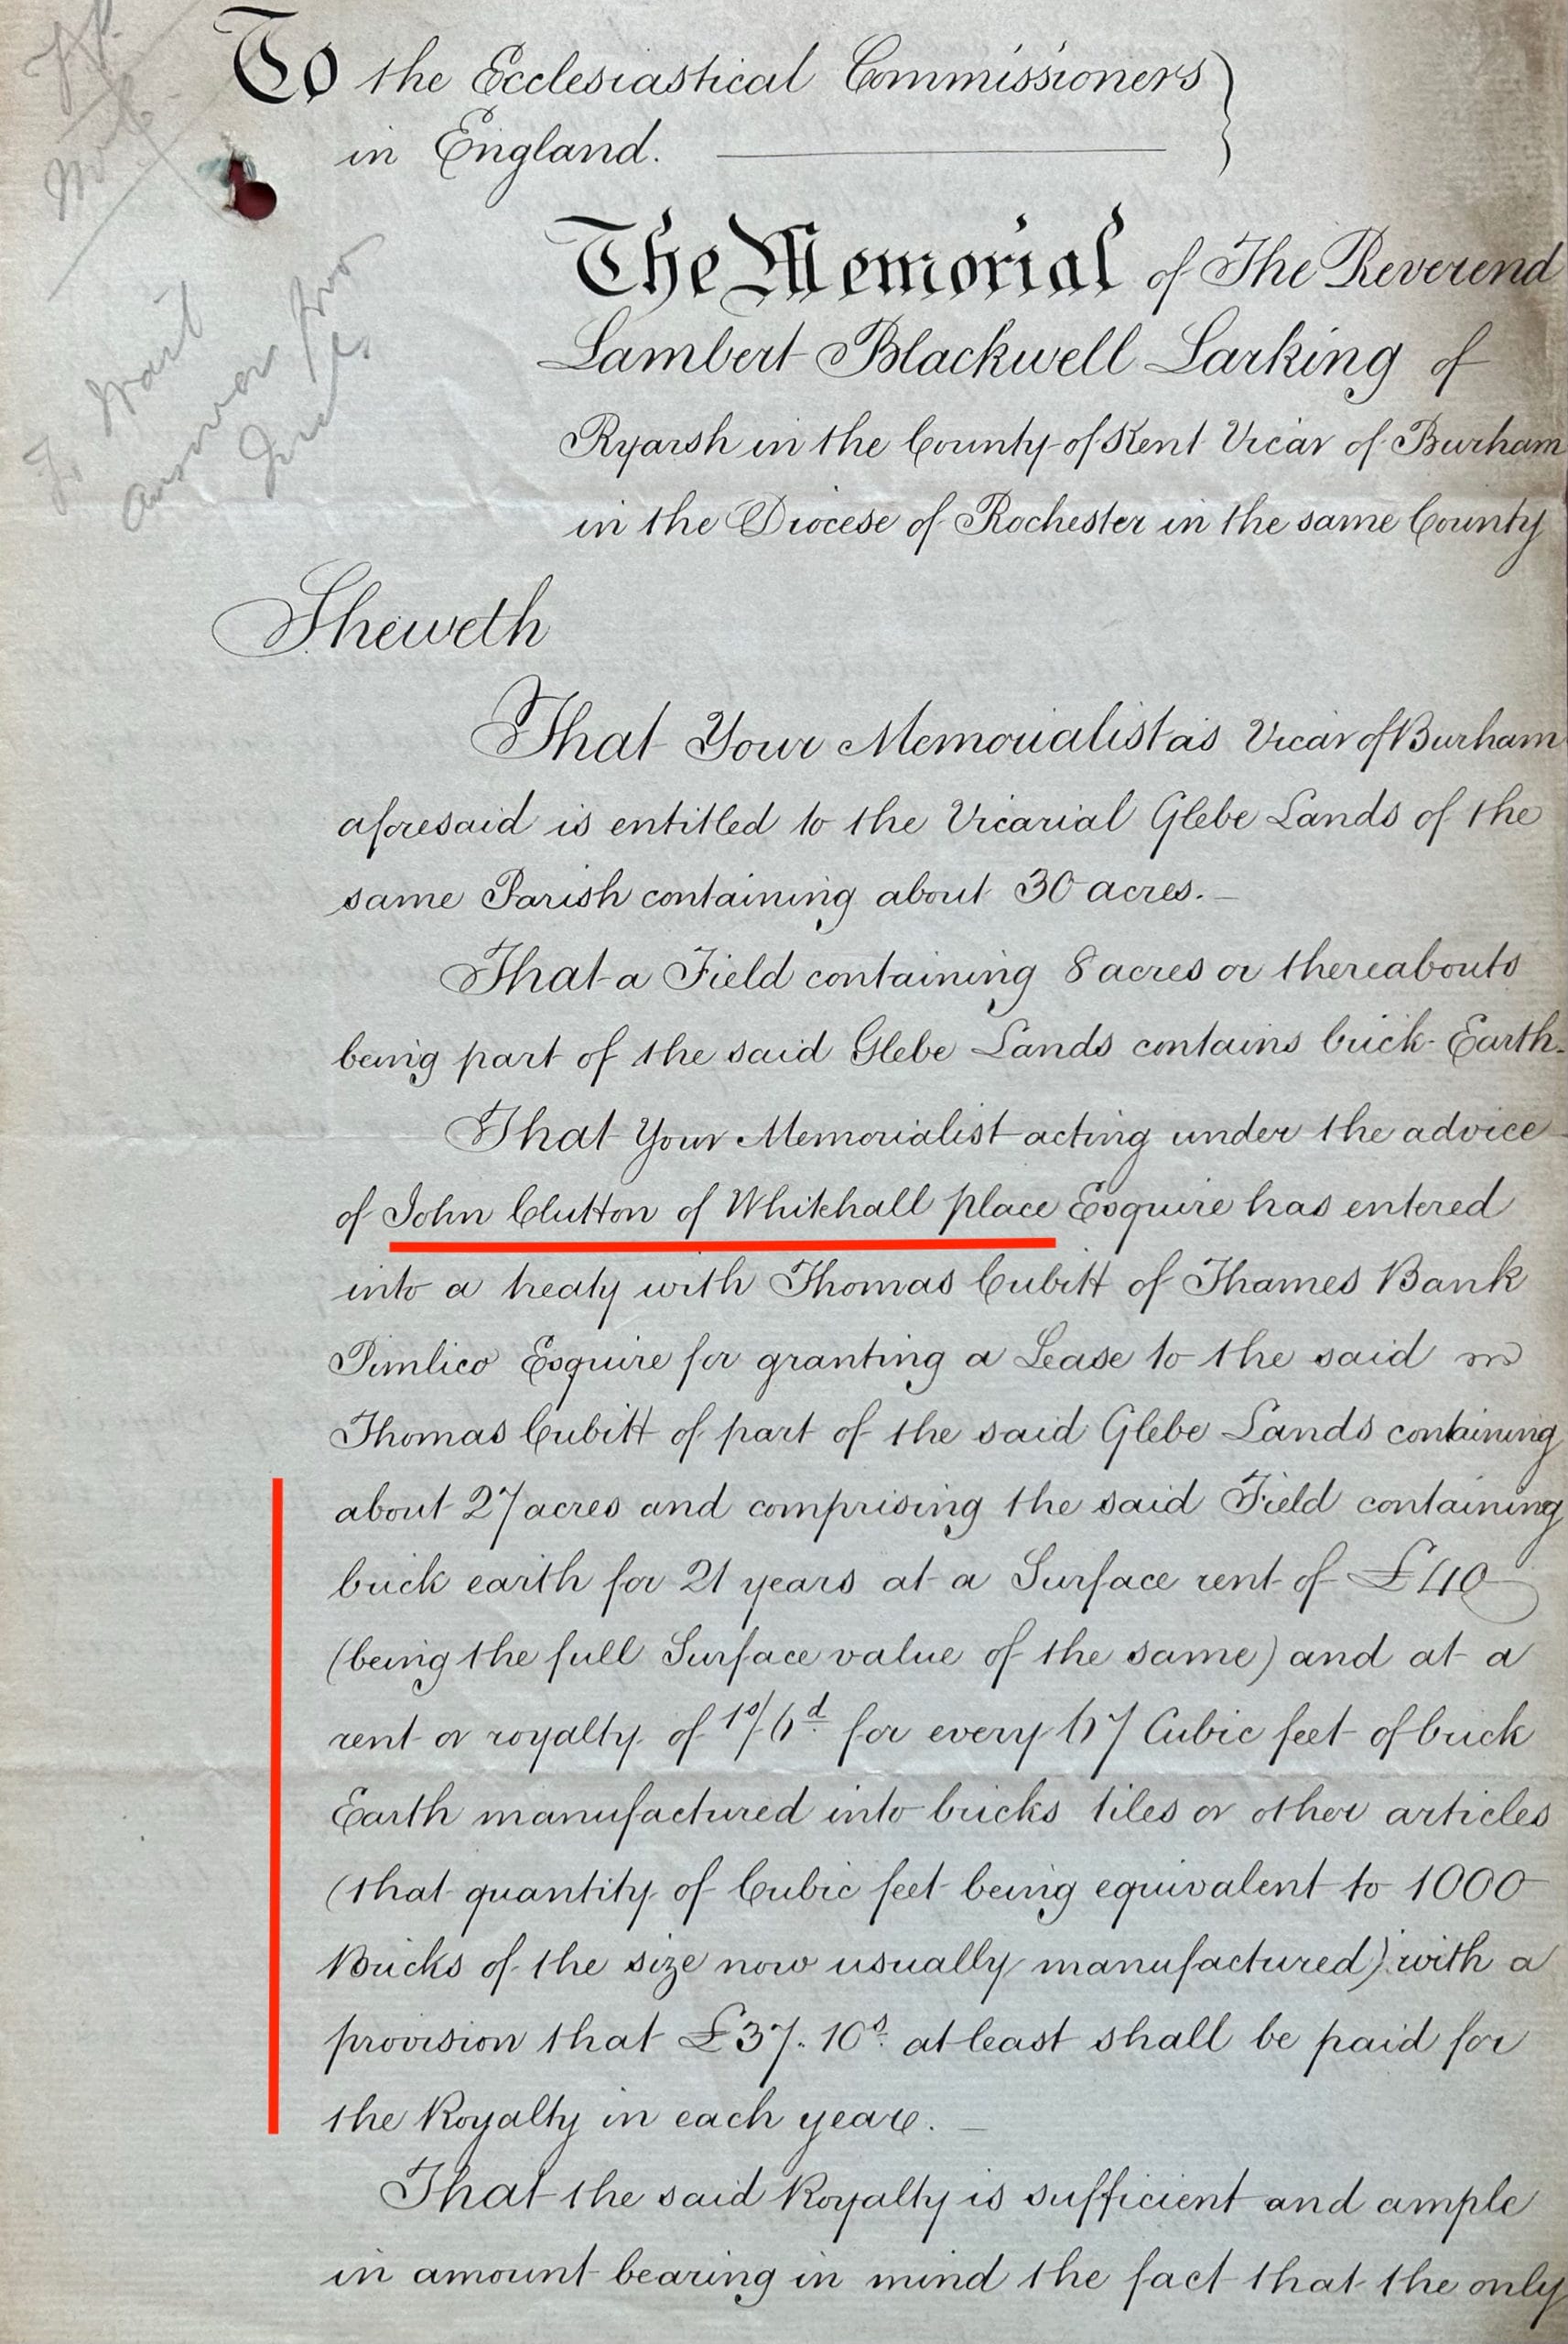 To the Ecclesiastical Commissioners
in England.
The Memorial of The Reverend
Lambert Blackwell Larking of
Ryarsh in the County of Kent Vicar of Burham
in the Diocese of Rochester in the same County
Sheweth
That Your Memorialist as Vicar of Burham
aforesaid is entitled to the Vicarial Glebe Lands of the
same Parish containing about 30 acres.
That a Field containing 8 acres or thereabouts
being part of the said Glebe Lands contains brick-Earth.
That Your Memorialist acting under the advice
of John Clutton of Whitehall place Esquire has entered
into a treaty with Thomas Cubitt of Thames Bank
Pimlico Esquire for granting a Lease to the said
Thomas Cubitt of part of the said Glebe Lands containing
about 27 acres and comprising the said Field containing
brick earth for 21 years at a Surface rent of £40
(being the full Surface value of the same) and at a
rent or royalty of 1s/6d for every 67 Cubic feet of brick
Earth manufactured into bricks tiles or other articles
(that quantity of Cubic feet being equivalent to 1000
Bricks of the size now usually manufactured) with a
provision that £37.10s. at least shall be paid for
the Royalty in each year.
That the said Royalty is sufficient and ample
in amount bearing in mind the fact that the only
To Wait
answer